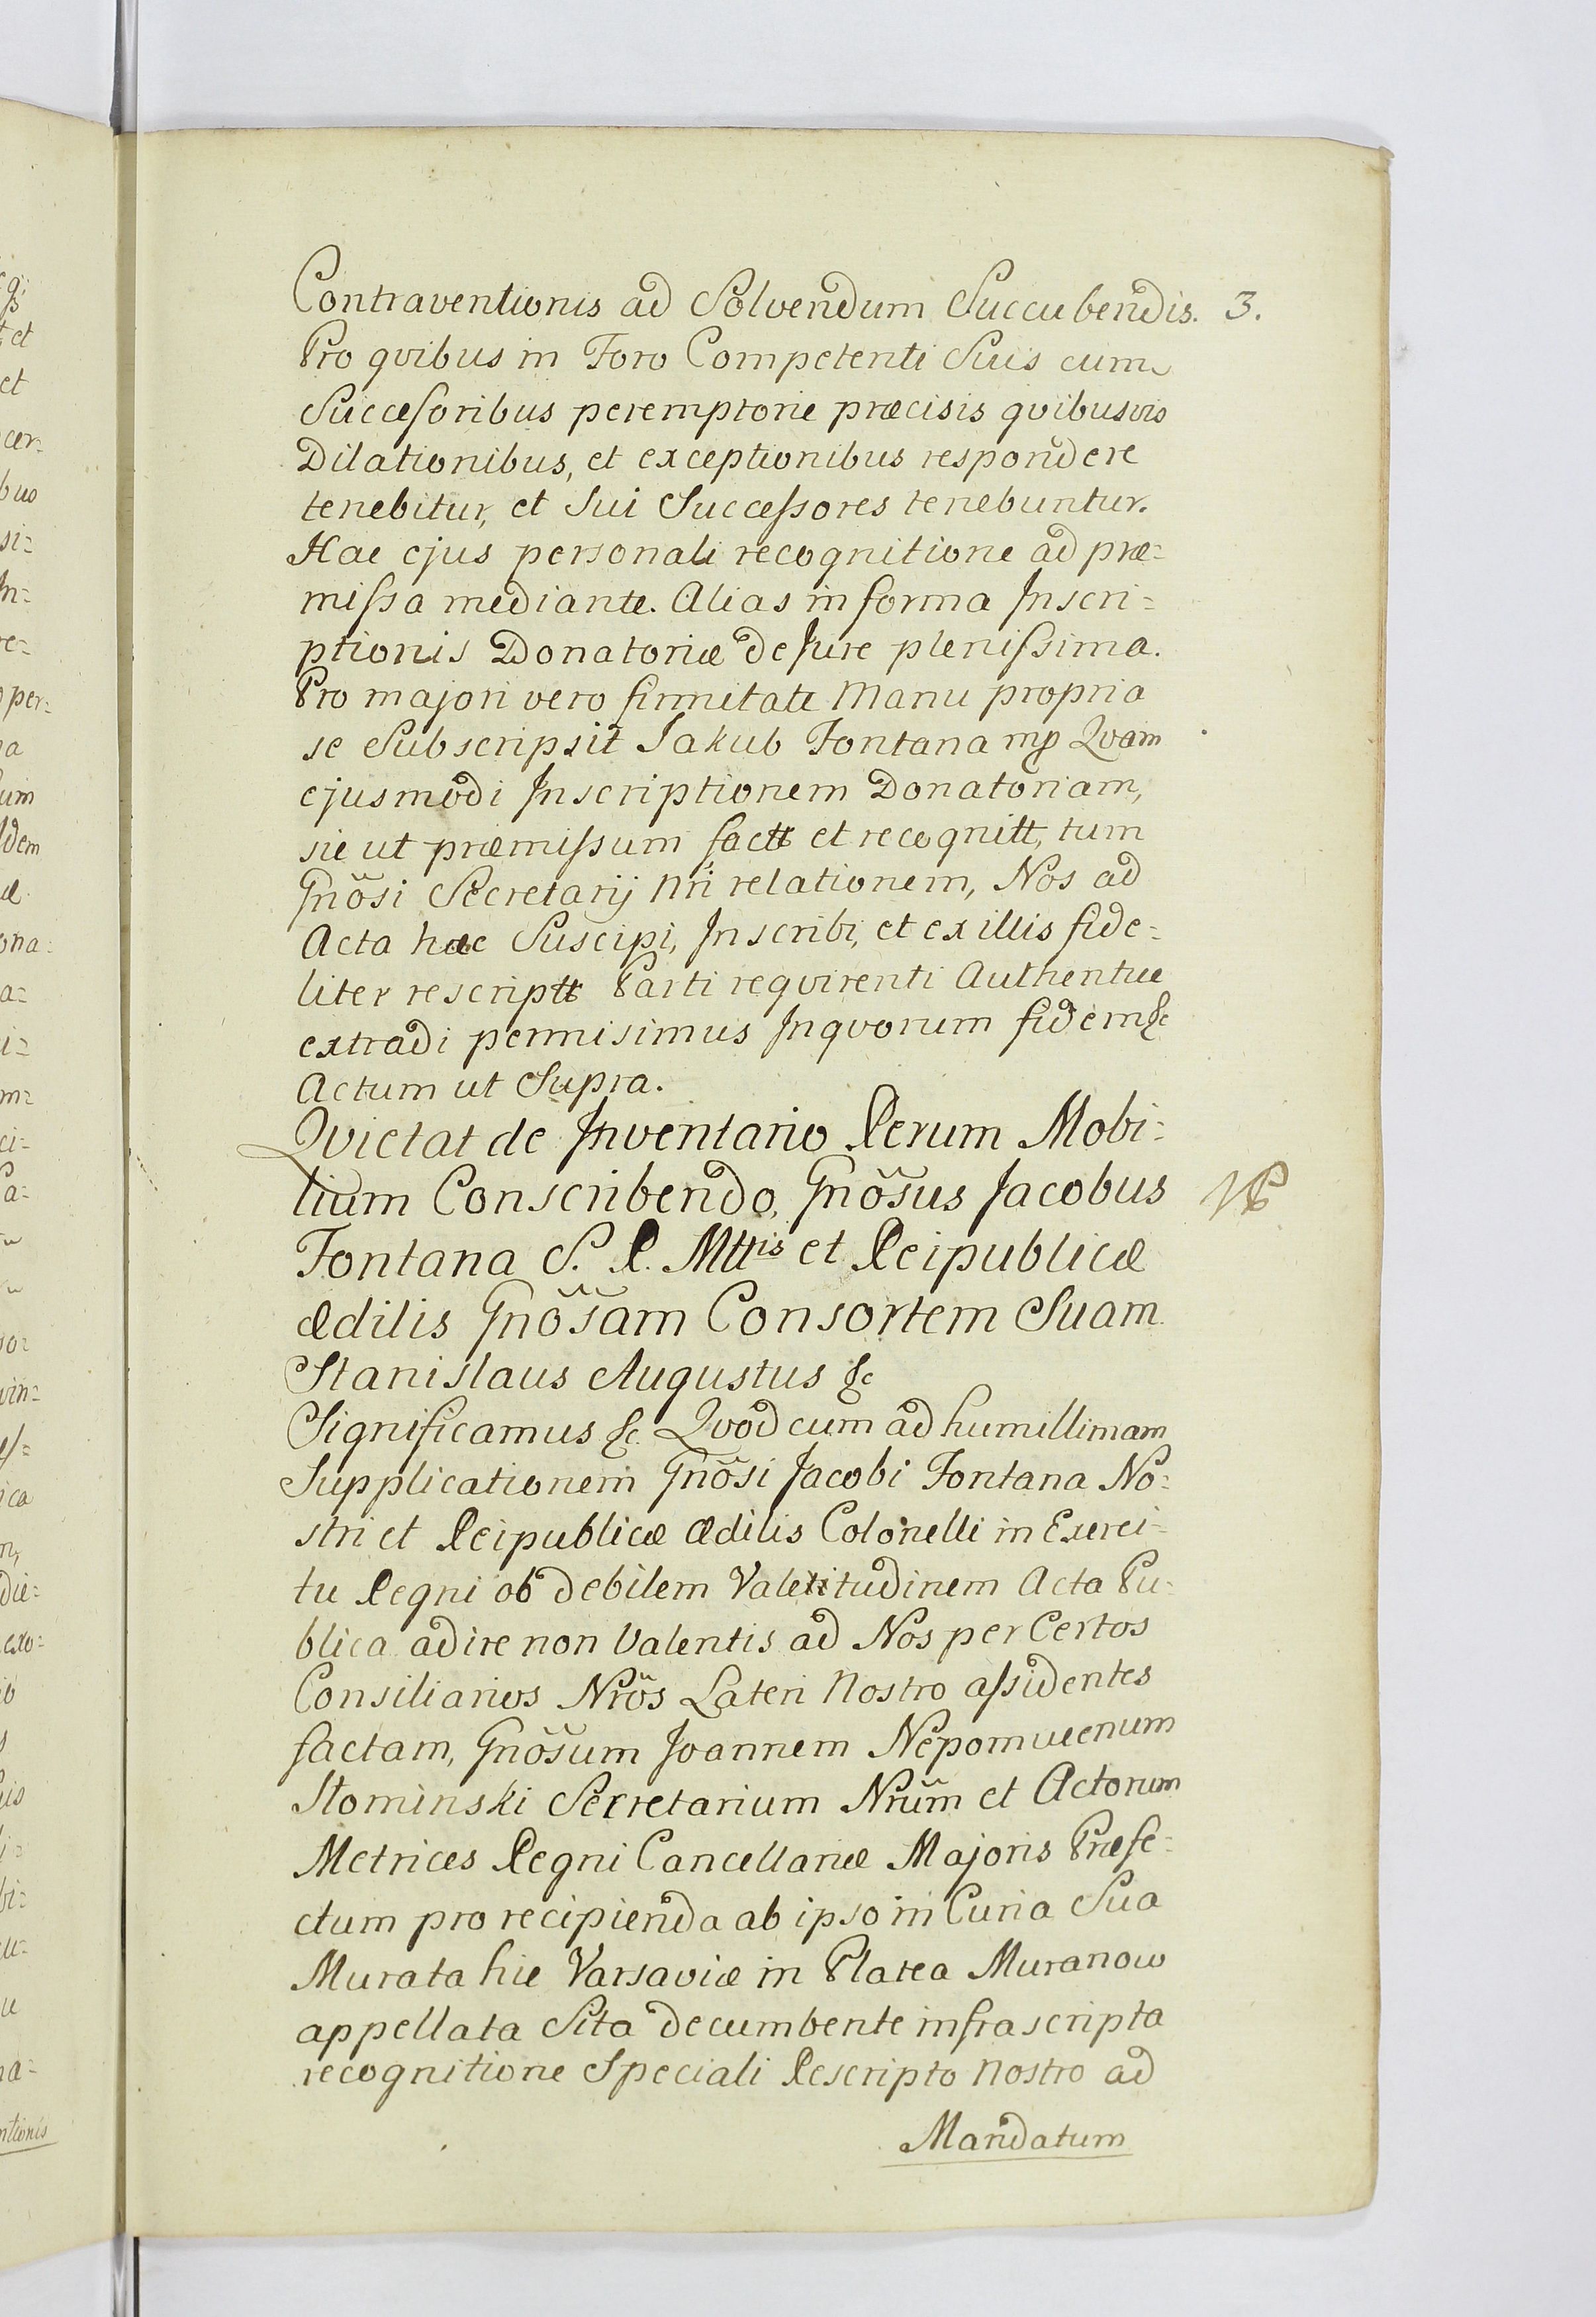 Contraventionis ad Solvendum Succubendis. 3.
Pro qvibus in Foro Competenti Suis cum
Succesoribus peremptorie præcisis qvibusvis
Dilationibus, et exceptionibus respondere
tenebitur, et Sui Successores tenebuntur.
Hac ejus personali recognitione ad præ=
missa mediante. Alias in forma Inscri=
ptionis Donatoriæ de Jure plenissima.
Pro majori vero firmitate Manu propria
se Subscripsit Jakub Fontana mp Qvam
ejusmodi Inscriptionem Donatoriam,
sic ut præmissum factt et recognitt, tum
Gnõsi Secretarij Nri relationem, Nos ad
Acta hæc Suscipi, Inscribi, et ex illis fide=
liter rescriptt Parti reqvirenti Authentice
extradi permisimus Inqvorum fidem &c
Actum ut Supra.
Qvietat de Inventario Rerum Mobi=
lium Conscribendo, Gnõsus Jacobus
Fontana S. R. Mttis et Reipublicæ
Ædilis Gnõsam Consortem Suam
Stanislaus Augustus &c
Significamus &c. Qvod cum ad humillimam
Supplicationem Gnõsi Jacobi Fontana No=
stri et Reipublicæ Ædilis Colonelli in Exerci=
tu Regni ob debilem Valetitudinem Acta Pu=
blica adire non Valentis ad Nos per Certos
Consiliarios Nrõs Lateri Nostro assidentes
factam, Gnõsum Joannem Nepomucenum
Słominski Secretarium Nrũm et Actorum
Metrices Regni Cancellariæ Majoris Præfe=
ctum pro recipienda ab ipso in Curia Sua
Murata hic Varsaviæ in Platea Muranow
appellata Sita decumbente infrascripta
recognitione Speciali Rescripto Nostro ad
Mandatum